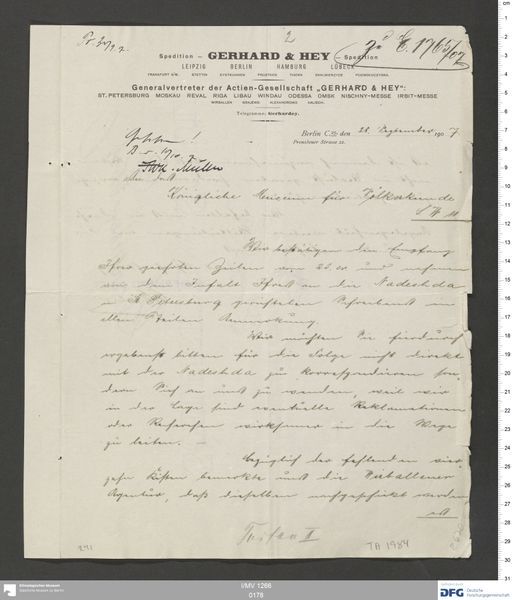 2
Spedition – GERHARD & HEY – Spedition
LEIPZIG BERLIN HAMBURG LÜBECK
FRANKFURT O/M. STETTIN EYDTKUHNEN PROSTKEN THORN
Generalvertreter der Actien-Gesellschaft „GERHARD & HEY":
ST. PETERSBURG MOSKAU REVAL RIGA LIBAU WINDAU ODESSA OMSK NISCHNY-MESSE IRBIT-MESSE
WIRBALLEN GRAJEWO ALEXANDROWO KALISCH
Telegramme: Gerhardey.
E. 1765/07
Berlin C. den 28. September 1907
Prenzlauer Strasse
An das
Königliche Museum für Völkerkunde
S.W. 11
Wir bestätigen den Empfang
Ihrer geehrten Zeilen vom 26. cr und nehmen
von dem Inhalt Ihres an die Nadeshda
in St Petersburg gerichteten Schreibens in
allen Theilen Anmerkung.
Wir möchten Sie hierdurch
ergebenst bitten für die Folge nicht direkt
mit der Nadeshda zu korrespondieren son-
dern Sich an uns zu wenden, weil wir
in der Lage sind eventuelle Reklamationen
oder Recherchen wirksamer in die Wege
zu leiten. –
Bezüglich der fehlenden vier-
zehn Kisten bemerkte uns die
Agentur, daß dieselben nachgeschickt werden
Turfan II
TA 1984
Ethnologisches Museum
Staatliche Museen zu Berlin
I/MV 1266
0176
DFG
Deutsche
Forschungsgemeinschaft